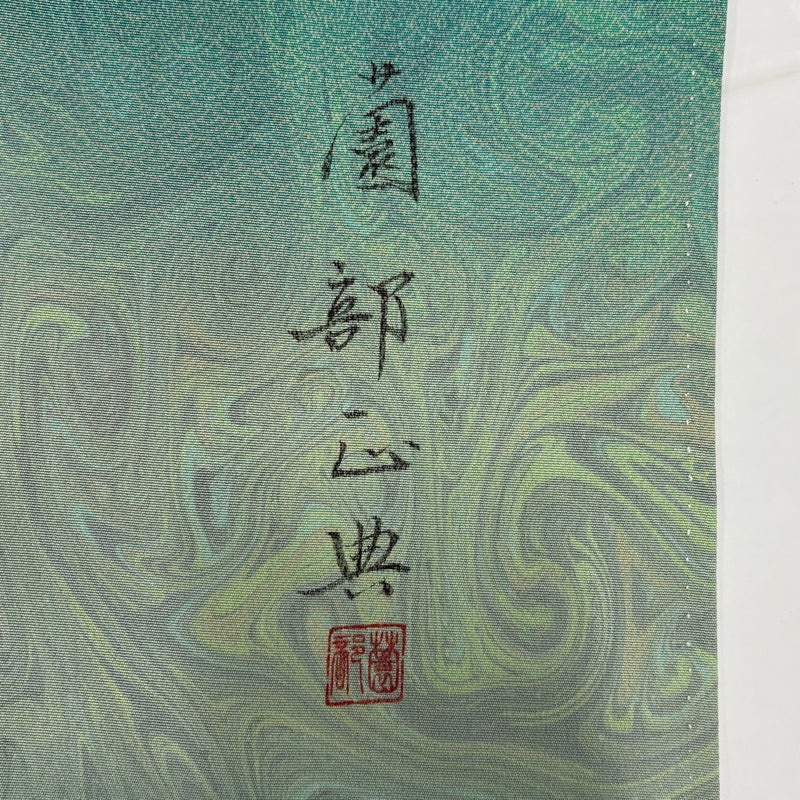 薗部正典
薗部